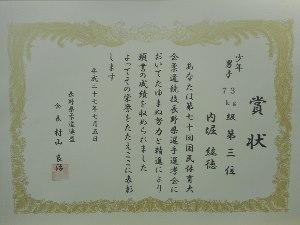 賞状
少年
男子
73
kg級
第三位
内堀
あなたは第七十回国民体育大
会柔道競技長野県選手選考会に
おいてたゆまぬ努力と精進により
頭書の成績を収められました
よってその栄誉をたたえここに表彰
します
平成二十七年七月五日
長野県柔道連盟
会長 村山